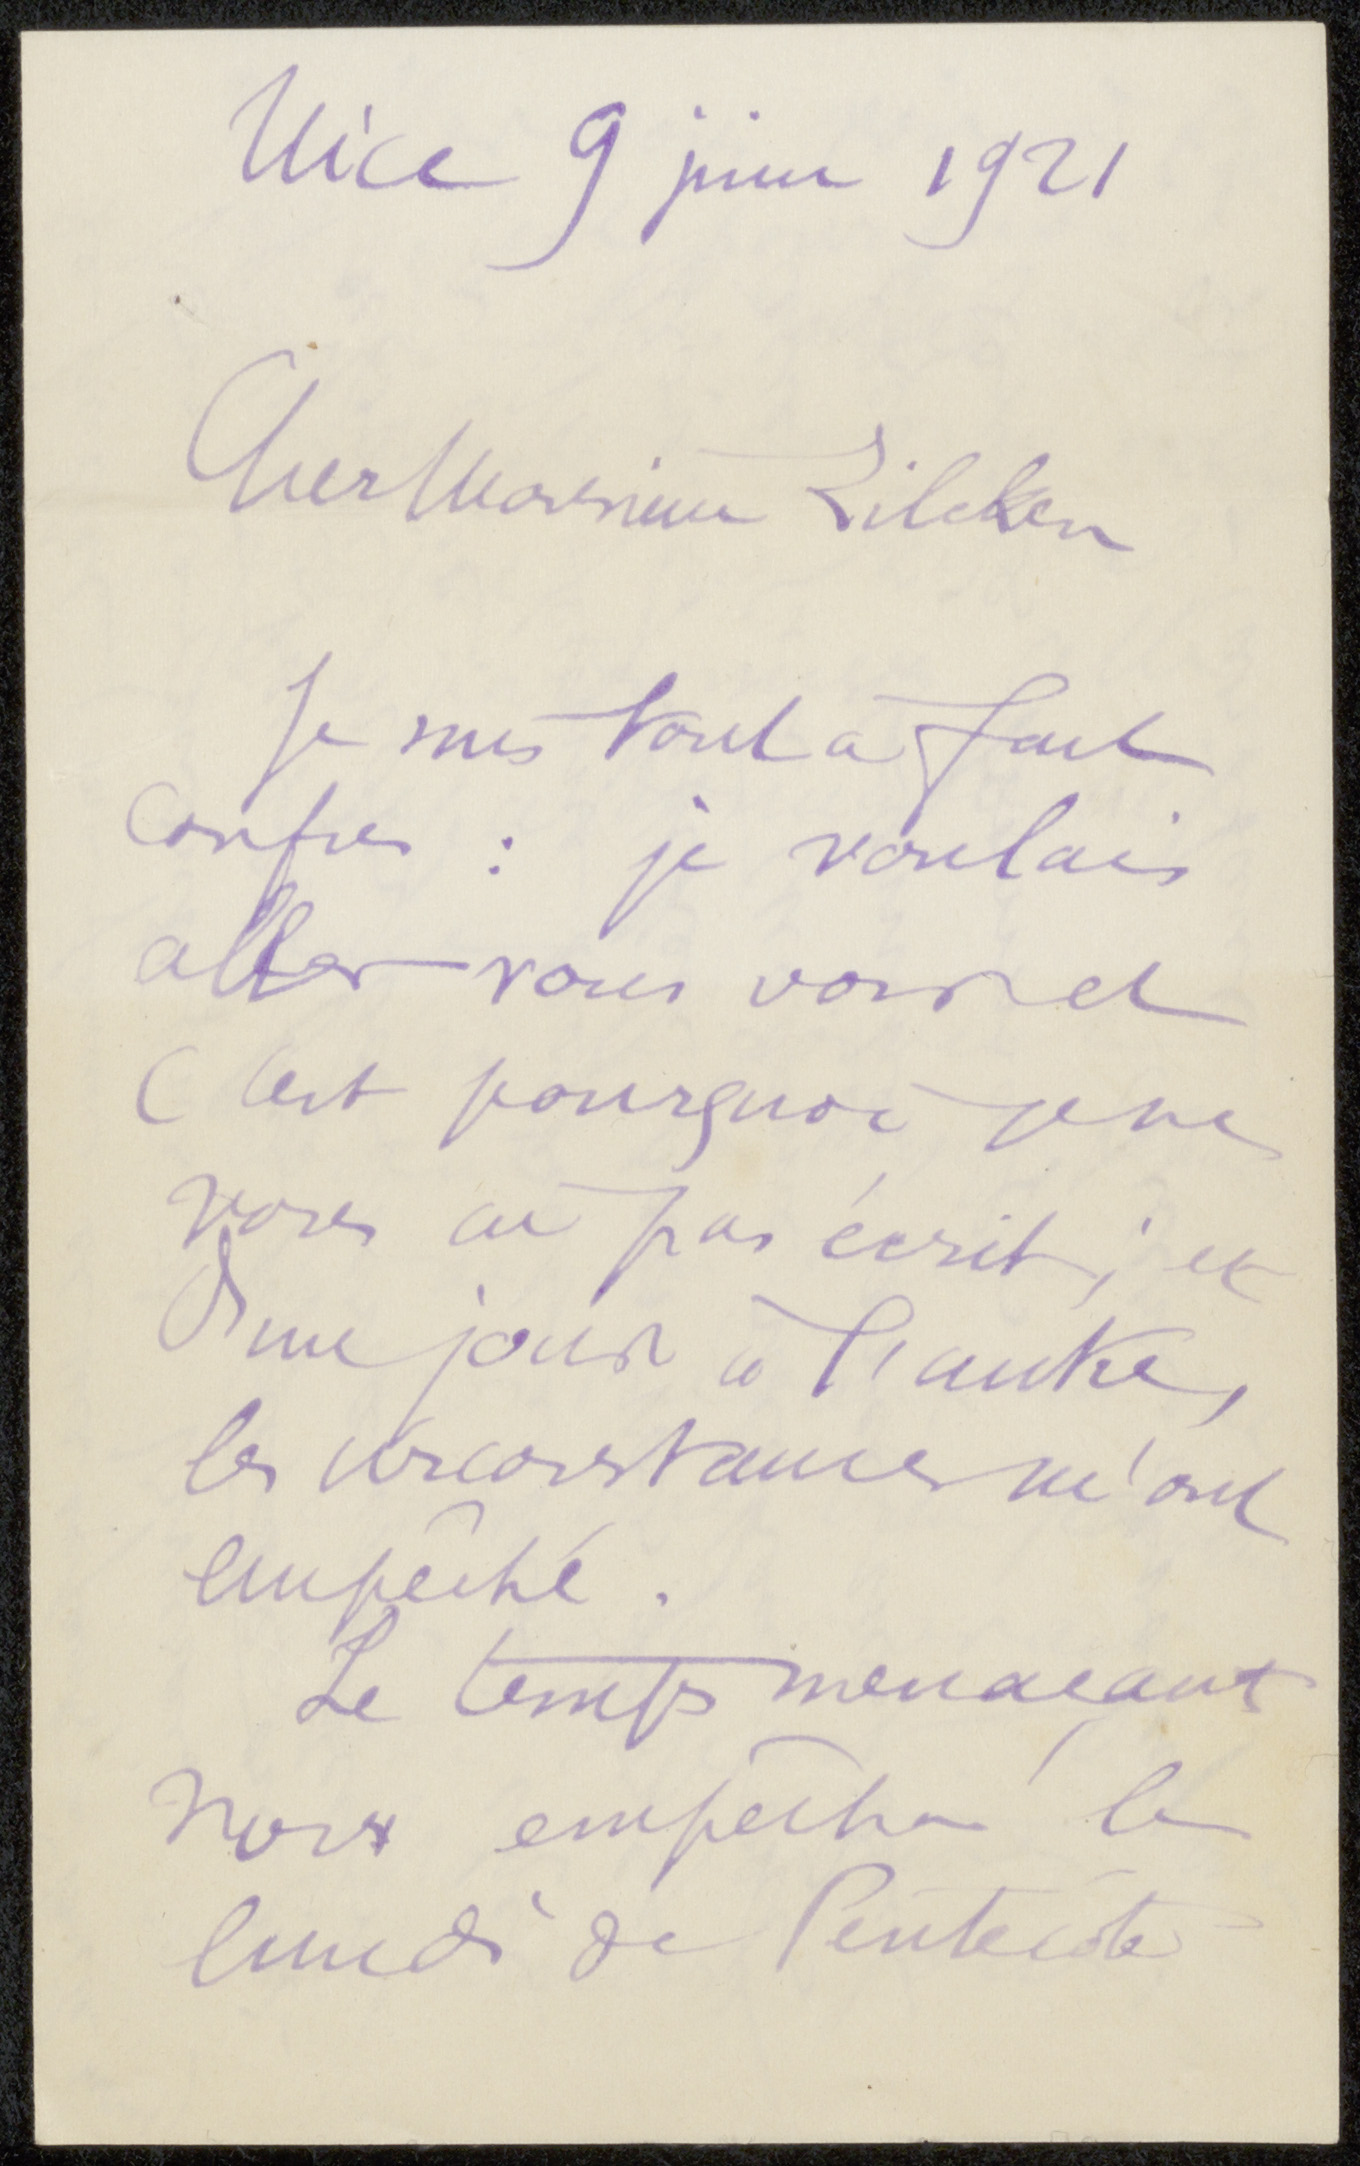 Nice 9 juin 1921
Cher Monsieur Zilcken
Je suis tout à fait
confus : je voulais
aller vous voir et
c'est pourquoi je ne
vous ai pas écrit ; et
d'un jour à l'autre,
les circonstances m'ont
empêché.
Le temps menaçant
nous empêcha le
lundi de Pentecôte